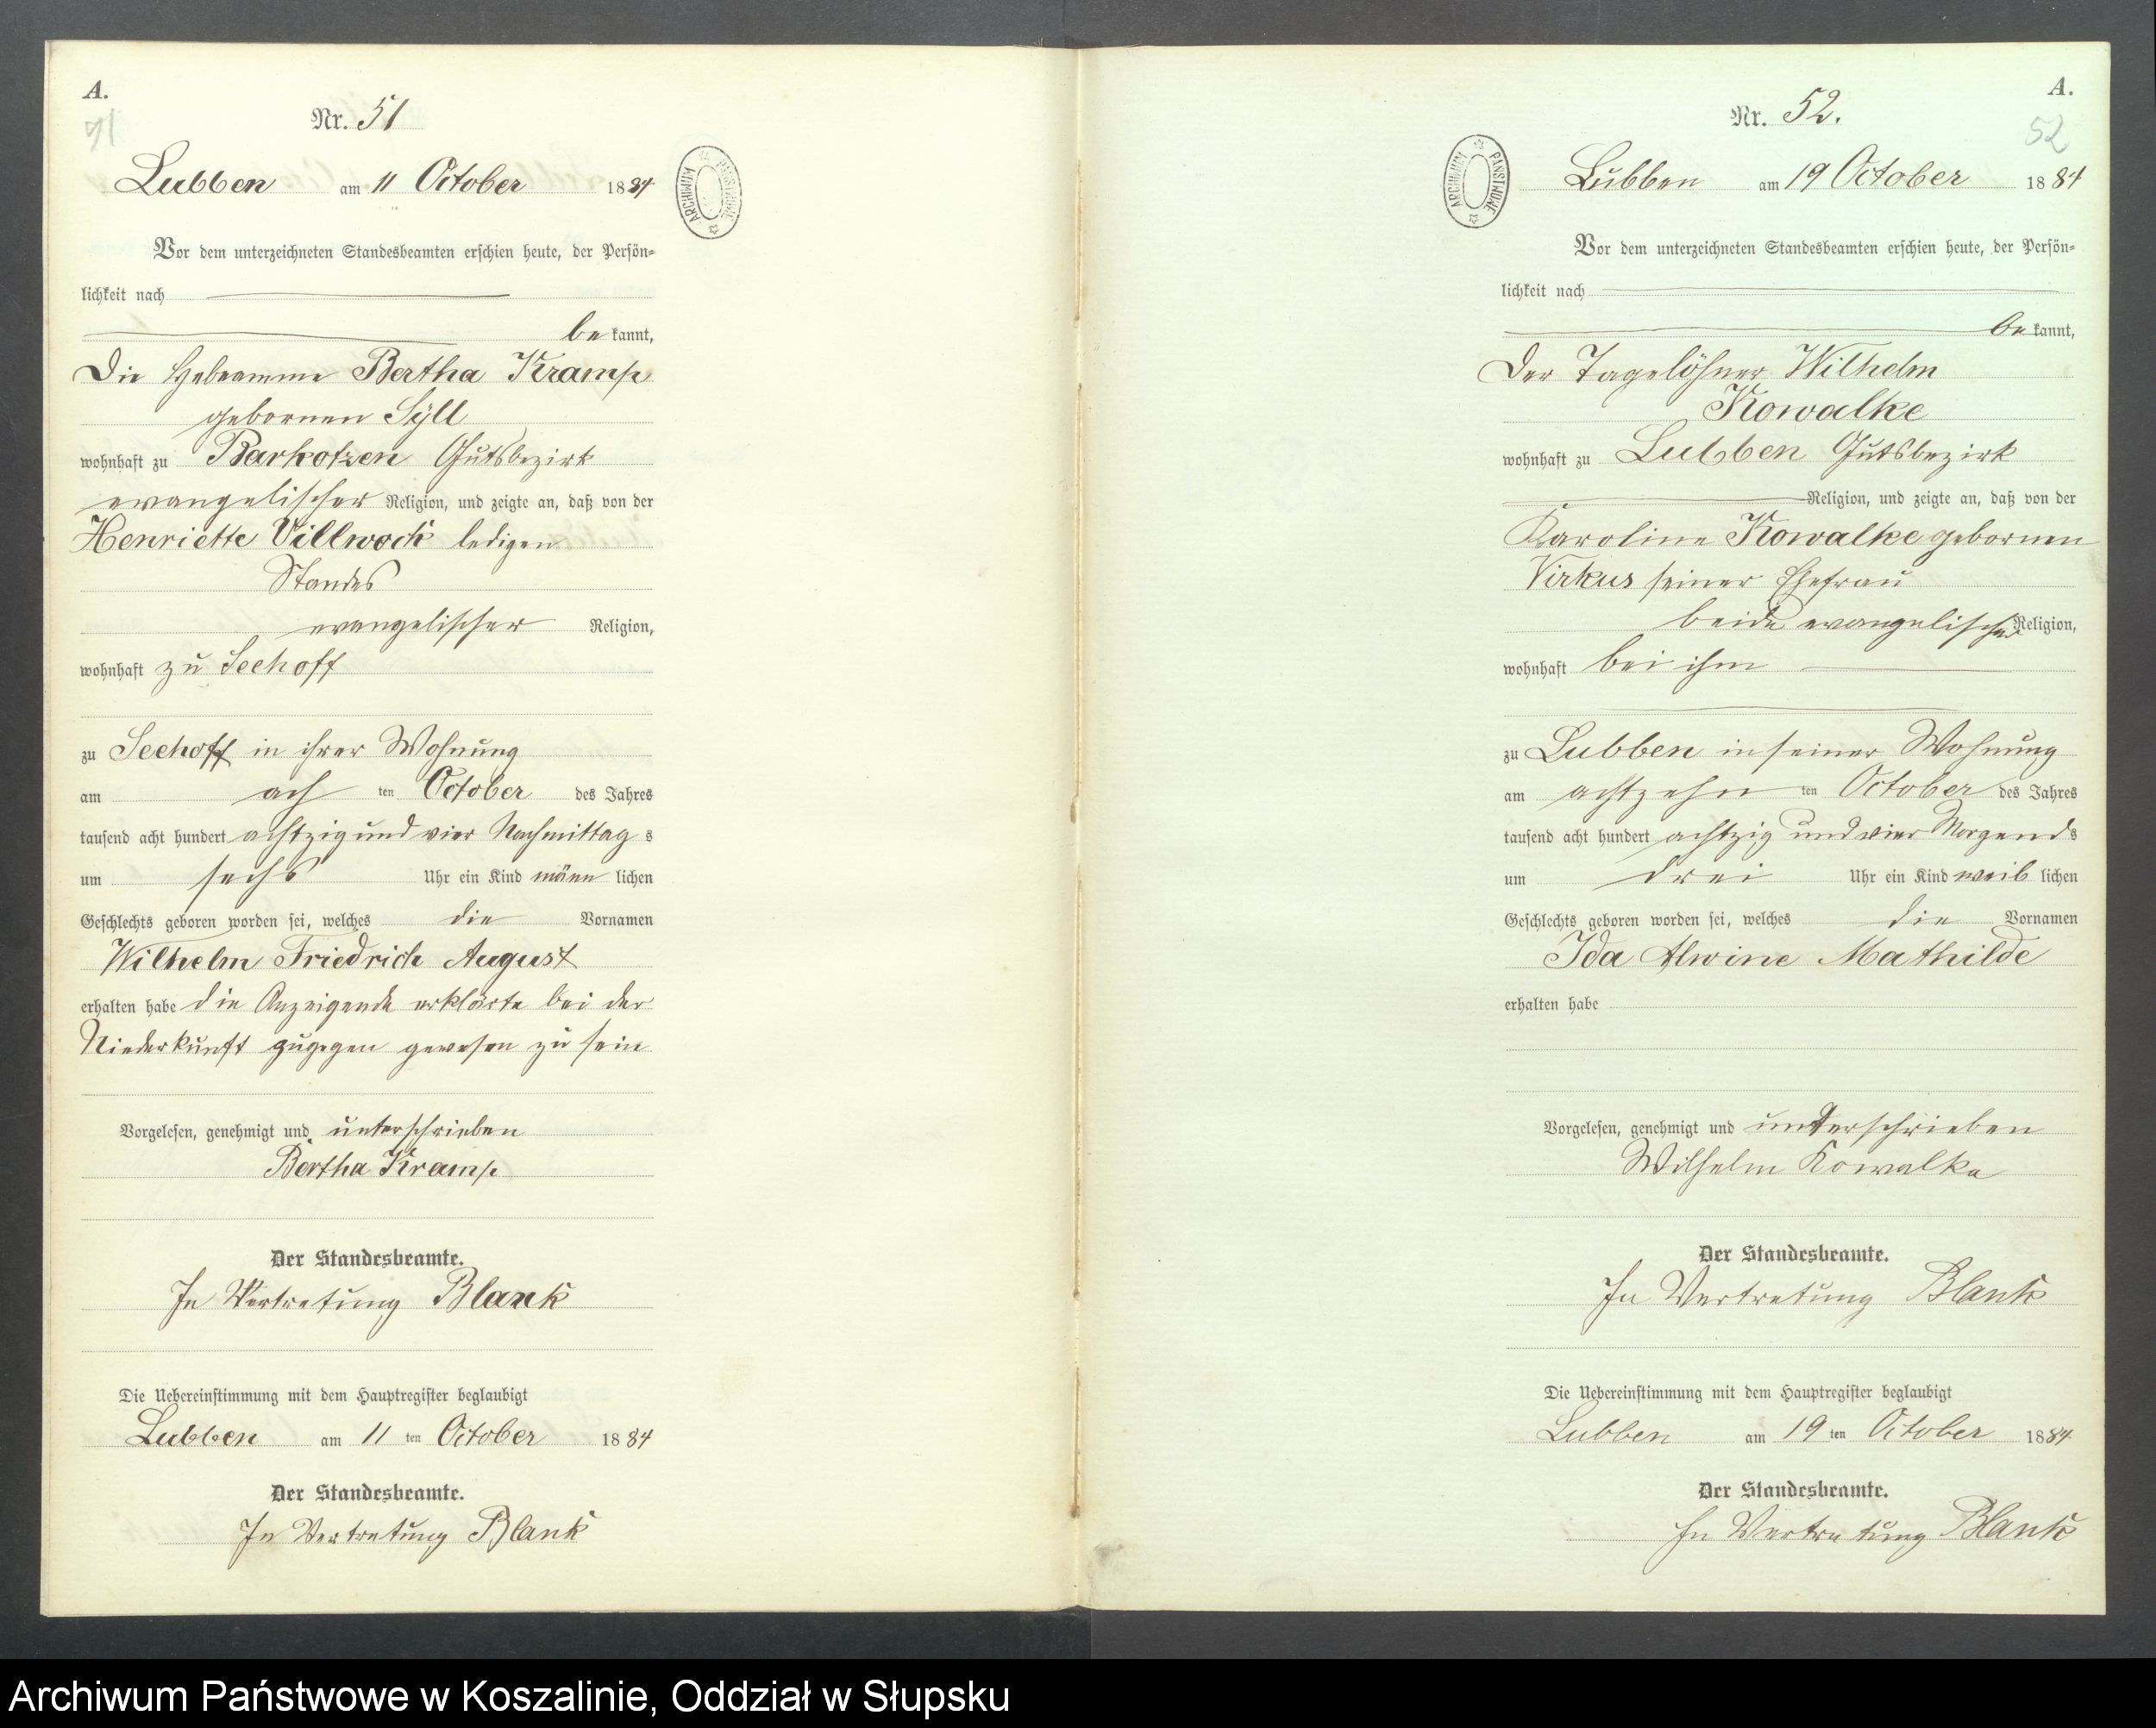 A.
Nr. 51
Lubben am 11 October 1884
Vor dem unterzeichneten Standesbeamten erschien heute, der Persön=
lichkeit nach
be kannt,
Die Hebeamme Bertha Kramp
gebornen Syll
wohnhaft zu Barkotzen Gutsbezirk
evangelischer Religion, und zeigte an, daß von der
Henriette Villwock ledigen
Standes
evangelischer Religion,
wohnhaft zu Seehoff
zu Seehoff in ihrer Wohnung
am ach ten October des Jahres
tausend acht hundert achtzig und vier Nachmittag s
um sechs Uhr ein Kind männ lichen
Geschlechts geboren worden sei, welches die Vornamen
Wilhelm Friedrich August
erhalten habe die Anzeigende erklärte bei der
Niederkunft zugegen gewesen zu sein
Vorgelesen, genehmigt und unterschrieben
Bertha Kramp
Der Standesbeamte.
In Vertretung Blank
Die Uebereinstimmung mit dem Hauptregister beglaubigt
Lubben am 11 ten October 1884
Der Standesbeamte.
In Vertretung Blank
ARCHIWUM PAŃSTWOWE
A.
Nr. 52.
52
Lubben am 19 October 1884
Vor dem unterzeichneten Standesbeamten erschien heute, der Persön=
lichkeit nach
be kannt,
Der Tagelöhner Wilhelm
Kowalke
wohnhaft zu Lubben Gutsbezirk
Religion, und zeigte an, daß von der
Karoline Kowalke gebornen
Virkus seiner Ehefrau
beide evangelischer Religion,
wohnhaft bei ihm
zu Lubben in seiner Wohnung
am achtzehn ten October des Jahres
tausend acht hundert achtzig und vier Morgend s
um drei Uhr ein Kind weib lichen
Geschlechts geboren worden sei, welches die Vornamen
Ida Alwine Mathilde
erhalten habe
Vorgelesen, genehmigt und unterschrieben
Wilhelm Kowalke
Der Standesbeamte.
In Vertretung Blank
Die Uebereinstimmung mit dem Hauptregister beglaubigt
Lubben am 19 ten October 1884
Der Standesbeamte.
In Vertretung Blank
ARCHIWUM PAŃSTWOWE
Archiwum Państwowe w Koszalinie, Oddział w Słupsku